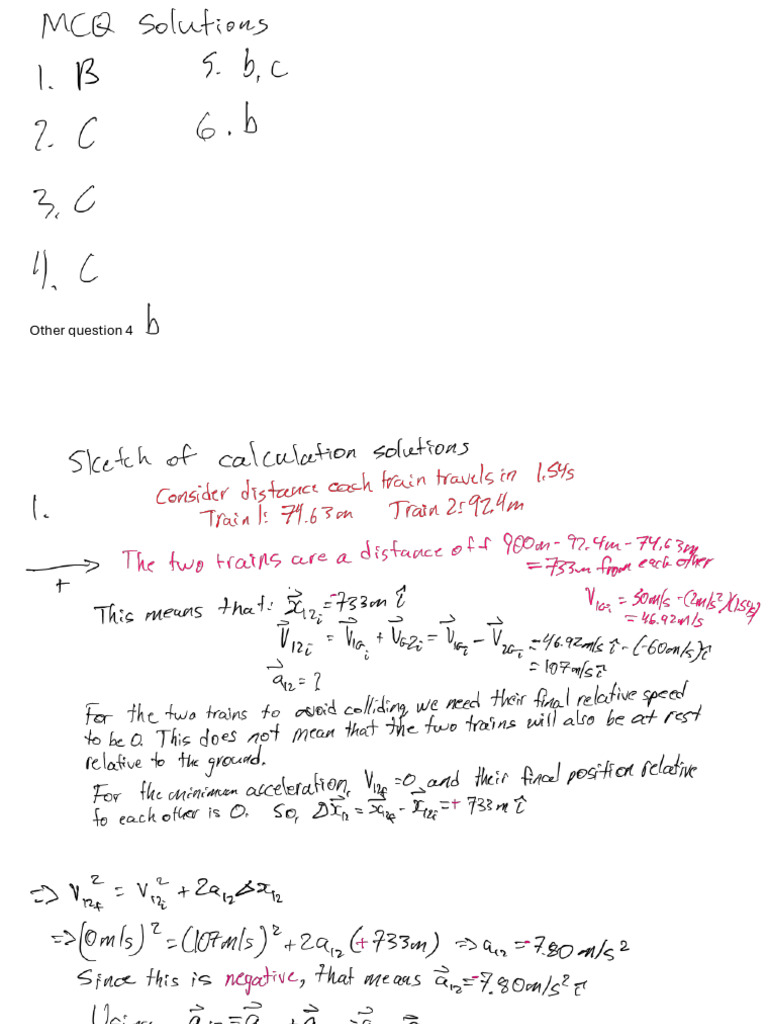 MCQ Solutions
1. B
5. b, c
2. C
6. b
3. C
4. C
Other question 4 b
Sketch of calculation solutions
1.
Consider distance each train travels in 1.54s
Train 1: 74.63m Train 2: 92.4m
The two trains are a distance off 900m - 92.4m - 74.63m
= 733m from each other
+
This means that: x⃗₁₂ᵢ = -733m î
V₁Gᵢ = 50m/s - (2m/s²)(1.54s)
= 46.92m/s
V⃗₁₂ᵢ = V⃗₁Gᵢ + V⃗G₂ᵢ = V⃗₁Gᵢ - V⃗₂Gᵢ = 46.92m/s î - (-60m/s)î
= 107m/s î
a⃗₁₂ = ?
For the two trains to avoid colliding, we need their final relative speed
to be 0. This does not mean that the two trains will also be at rest
relative to the ground.
For the minimum acceleration, V₁₂f = 0 and their final position relative
to each other is 0. So, Δx⃗₁₂ = x⃗₁₂f - x⃗₁₂ᵢ = + 733m î
⇒ V₁₂f² = V₁₂ᵢ² + 2a₁₂ Δx₁₂
⇒ (0m/s)² = (107m/s)² + 2a₁₂ (+733m) ⇒ a₁₂ = -7.80 m/s²
Since this is negative, that means a⃗₁₂ = -7.80m/s² î